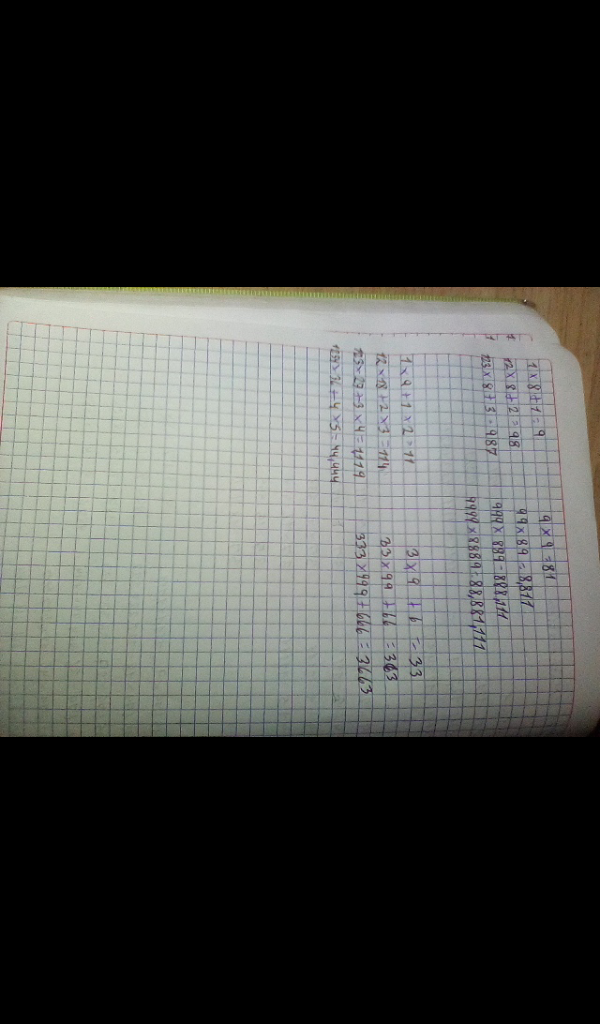 1 x 8 + 1 = 9
12 x 8 + 2 = 98
123 x 8 + 3 = 987
9 x 9 = 81
99 x 89 = 8,811
999 x 889 = 888,111
9999 x 8889 = 88,881,111
1 x 9 + 1 x 2 = 11
12 x 18 + 2 x 3 = 114
+ 3 x 4 = 1119
+ 4 x 5 = 44,444
3 x 9 + 6 = 33
33 x 99 + 66 = 3363
333 x 999 + 666 = 3663